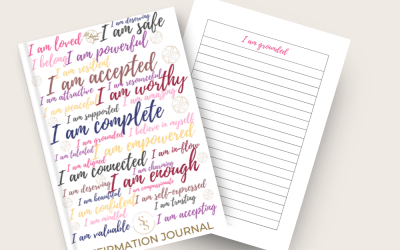 I am deserving
I am loved
I am safe
I belong
I am powerful
I am resilient
I am accepted
I am resourceful
I am attractive
I am worthy
I am peaceful
I am amazing
I am supported
I am complete
I am grounded
I believe in myself
I am talented
I am empowered
I am aligned
I am in-flow
I am connected
I am charming
I am deserving
I am enough
I am beautiful
I am compassionate
I am confident
I am self-expressed
I am mindful
I am trusting
I am valuable
I am accepting
FIRMATION JOURNAL
I am grounded